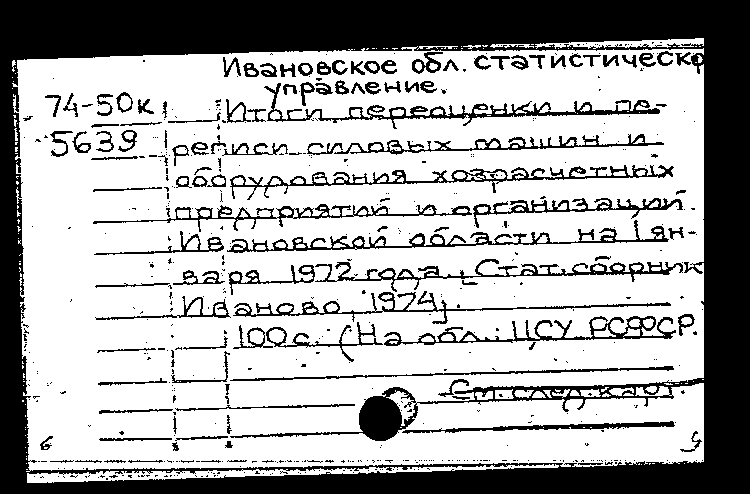 Ивановское обл. статистическо
управление.
74-50к Итоги переоценки и пе-
5639 реписи силовых машин и
оборудования хозрасчетных
предприятий и организаций
Ивановской области на 1 ян-
варя 1972 года. Стат. сборник
Иваново, 1974.
100 с. (На обл.: ЦСУ РСФСР.
См. след. карт.
б